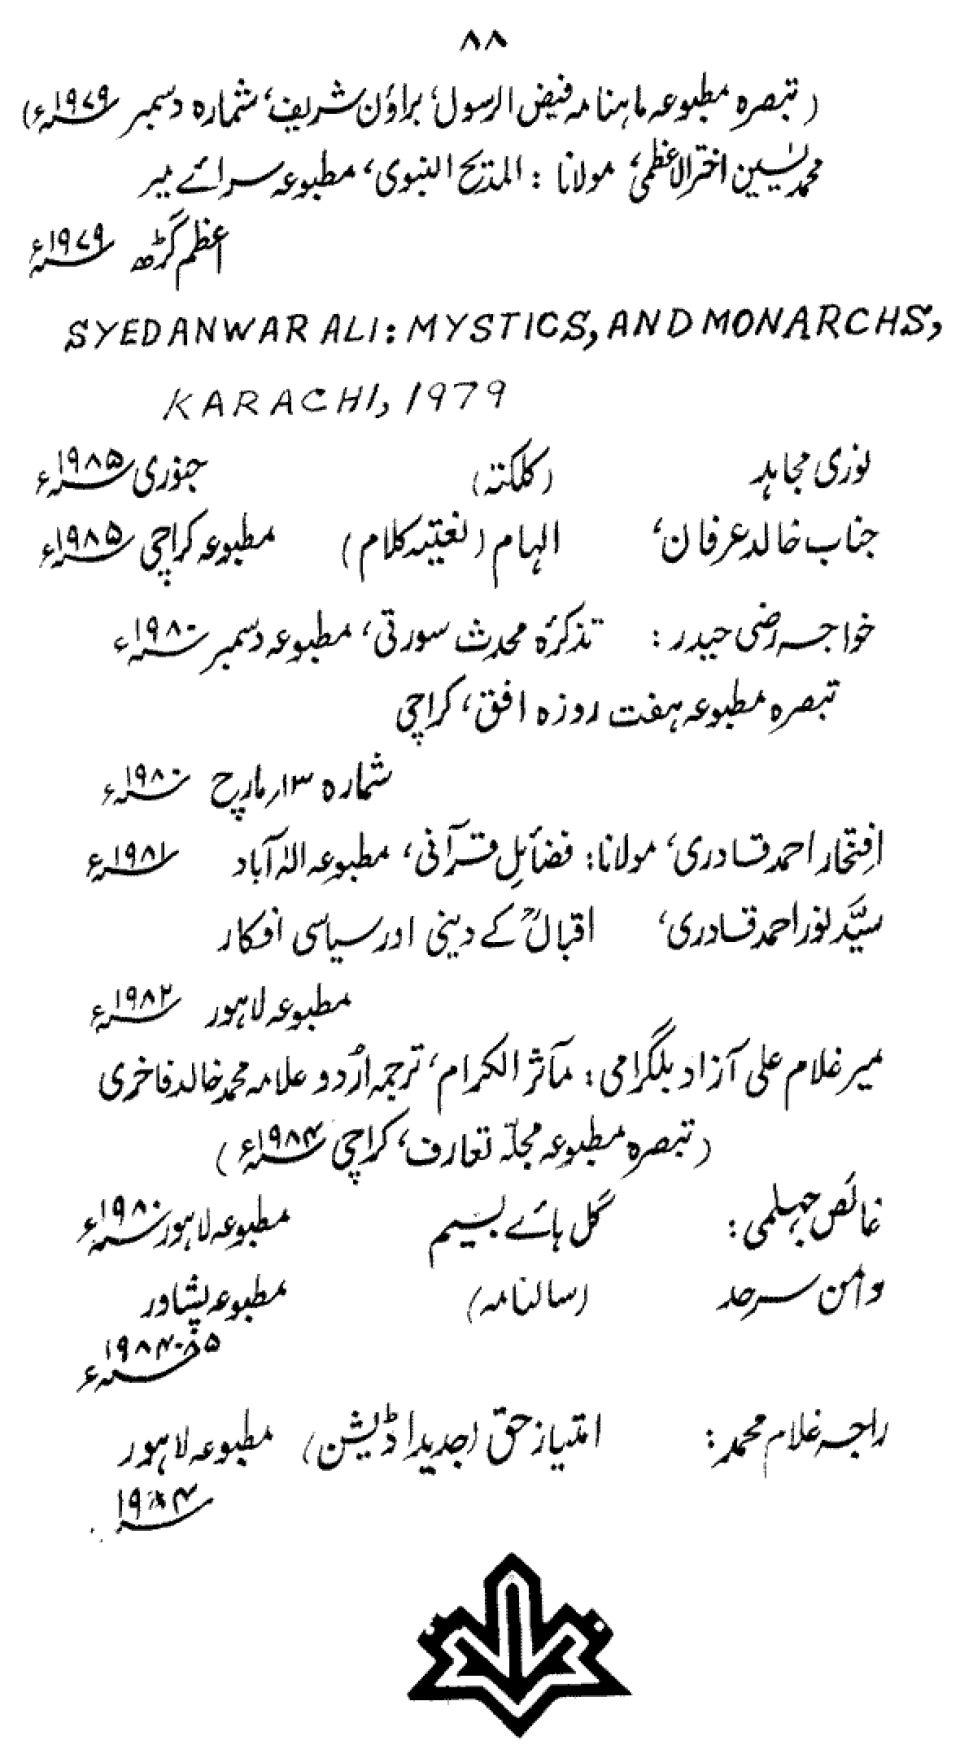 ۸۸
(تبصرہ مطبوعہ ماہنامہ فیض الرسول، براؤن شریف، شمارہ دسمبر ۱۹۷۹ء)
محمد یٰسین اختر الاعظمی، مولانا : المدیح النبوی، مطبوعہ سرائے میر
اعظم گڑھ ۱۹۷۹ء
SYED ANWAR ALI: MYSTICS, AND MONARCHS,
KARACHI, 1979
نوری مجاہد (کلکتہ) جنوری ۱۹۸۵ء
جناب خالد عرفان، الہام (نعتیہ کلام) مطبوعہ کراچی ۱۹۸۵ء
خواجہ رضی حیدر : تذکرہ محدث سورتی، مطبوعہ دسمبر ۱۹۸۰ء
تبصرہ مطبوعہ ہفت روزہ افق، کراچی
شمارہ ۱۳؍ مارچ ۱۹۸۰ء
افتخار احمد قادری، مولانا: فضائلِ قرآنی، مطبوعہ الٰہ آباد ۱۹۸۱ء
سیّد نور احمد قادری، اقبالؒ کے دینی اور سیاسی افکار
مطبوعہ لاہور ۱۹۸۲ء
میر غلام علی آزاد بلگرامی : مآثر الکرام، ترجمہ اُردو علامہ محمد خالد فاخری
(تبصرہ مطبوعہ مجلّہ تعارف، کراچی ۱۹۸۴ء)
غائص جہلمی : گل ہائے بسیم مطبوعہ لاہور ۱۹۸۰ء
دامن سرحد (سالنامہ) مطبوعہ پشاور
۱۹۸۴-۸۵ء
راجہ غلام محمد : امتیاز حق (جدید اڈیشن) مطبوعہ لاہور
۱۹۸۴